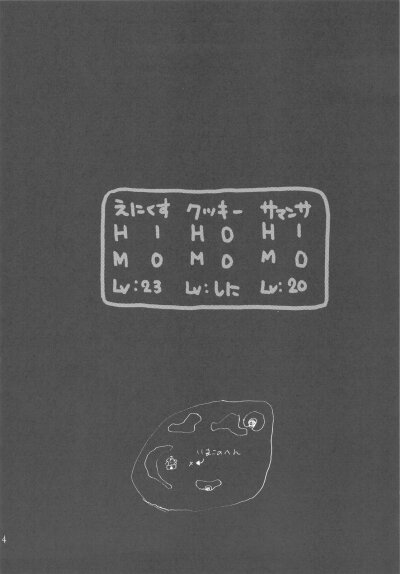 えにくす クッキー サマンサ
H 1 H 0 H 1
M 0 M 0 M 0
Lv:23 Lv:しに Lv:20
いまこのへん
4